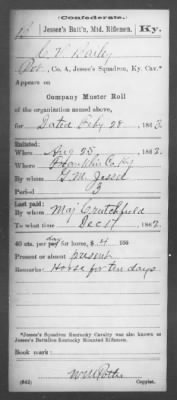 (Confederate.)
Jessee's Batt'n, Mtd. Riflemen. Ky.
C. V. Baily
Pvt., Co. A, Jessee's Squadron, Ky. Cav.*
Appears on
Company Muster Roll
of the organization named above,
for Dated Feby 28, 1863.
Enlisted:
When Aug 25, 1862.
Where Franklin Co Ky
By whom G. M. Jessee
Period 3
Last paid:
By whom Maj Crutchfield
To what time Dec 17, 1862.
40 cts. per day for horse, $ 4 100
Present or absent present
Remarks: Horse for ten days
*Jessee's Squadron Kentucky Cavalry was also known as
Jessee's Battalion Kentucky Mounted Riflemen.
Book mark:
(642)
Copyist.